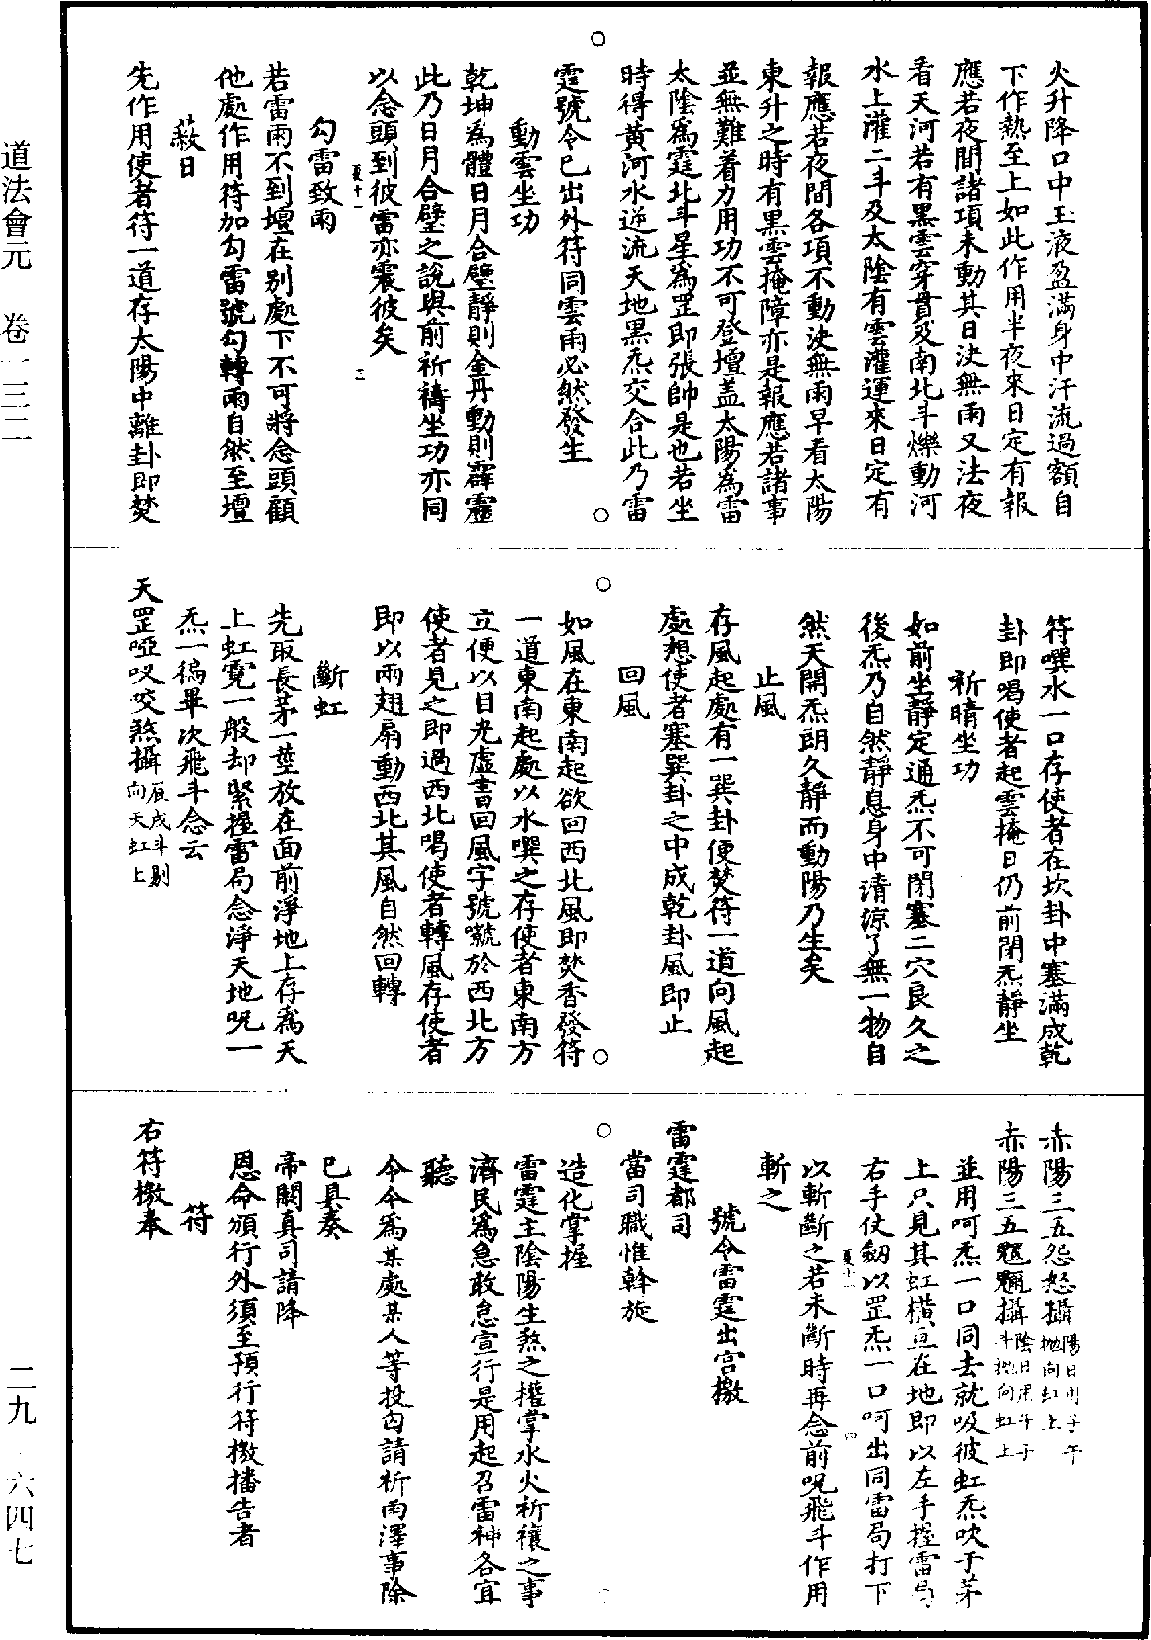 火升降口中玉液盈滿身中汗流過額自
下作熱至上如此作用半夜來日定有報
應若夜間諸項未動其日決無雨又法夜
看天河若有黑雲穿貫及南北斗爍動河
水上灌二斗及太陰有雲灌運來日定有
報應若夜間各項不動決無雨早看太陽
東升之時有黑雲掩障亦是報應若諸事
並無難着力用功不可登壇盖太陽為雷
太陰為霆北斗星為罡即張帥是也若坐
時得黄河水逆流天地黑炁交合此乃雷
霆號令已出外符同雲雨必然發生
動雲坐功
乾坤為體日月合璧靜則金丹動則霹靂
此乃日月合璧之說與前祈禱坐功亦同
以念頭到彼雷亦震彼矣
夏十一
三
勾雷致雨
若雷雨不到壇在別處下不可將念頭顧
他處作用符加勾雷號勾轉雨自然至壇
蔽日
先作用使者符一道存太陽中離卦即焚
符噀水一口存使者在坎卦中塞滿成乾
卦即喝使者起雲掩日仍前閉炁靜坐
祈晴坐功
如前坐靜定通炁不可閉塞二穴良久之
後炁乃自然靜息身中清涼了無一物自
然天開炁朗久靜而動陽乃生矣
止風
存風起處有一巽卦便焚符一道向風起
處想使者塞巽卦之中成乾卦風即止
回風
如風在東南起欲回西北風即焚香發符
一道東南起處以水噀之存使者東南方
立便以目光虛書回風字號噓於西北方
使者見之即過西北喝使者轉風存使者
即以兩翅扇動西北其風自然回轉
斷虹
先取長茅一莖放在面前淨地上存為天
上虹霓一般却緊握雷局念淨天地呪一
炁一徧畢次飛斗念云
天罡啞㕭咬煞攝辰戌斗剔
向天虹上
赤陽三五怨怒攝陽日用子午
抛向虹上
赤陽三五䰢魍攝陰日用午子
斗抛向虹上
並用呵炁一口同去就吸彼虹炁吹于茅
上只見其虹横亘在地即以左手握雷局
右手仗劒以罡炁一口呵出同雷局打下
以斬斷之若未斷時再念前呪飛斗作用
夏十一
四
斬之
號令雷霆出宫檄
雷霆都司
當司職惟斡旋
造化掌握
雷霆主陰陽生煞之權掌水火祈禳之事
濟民為急敢怠宣行是用起召雷神各宜
聽
令今為某處某人等投詞請祈雨澤事除
已具奏
帝闕真司請降
恩命頒行外須至預行符檄播告者
符
右符檄奉
道法會元 卷一三二
二九·六四七